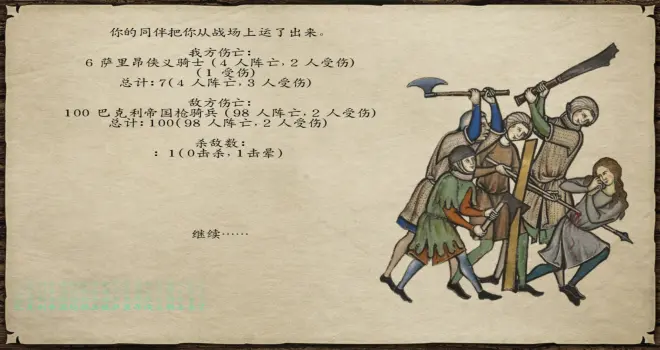 你的同伴把你从战场上运了出来。
我方伤亡:
6 萨里昂侠义骑士 (4 人阵亡, 2 人受伤)
(1 受伤)
总计: 7(4 人阵亡, 3 人受伤)
敌方伤亡:
100 巴克利帝国枪骑兵 (98 人阵亡, 2 人受伤)
总计: 100(98 人阵亡, 2 人受伤)
杀敌数:
: 1(0击杀, 1击晕)
继续……